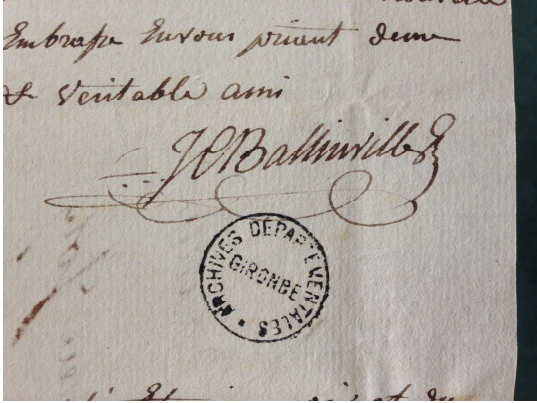 Embrasse En vous priant deme
& veritable ami
JCBallinville
ARCHIVES DÉPARTEMENTALES
GIRONDE